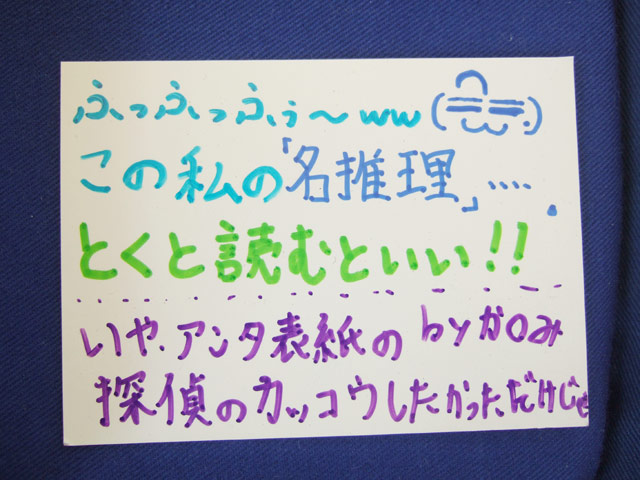 ふっふっふぅ〜ww
この私の「名推理」‥‥
とくと読むといい!!
いや、アンタ表紙の by かのみ
探偵のカッコウしたかっただけじゃ